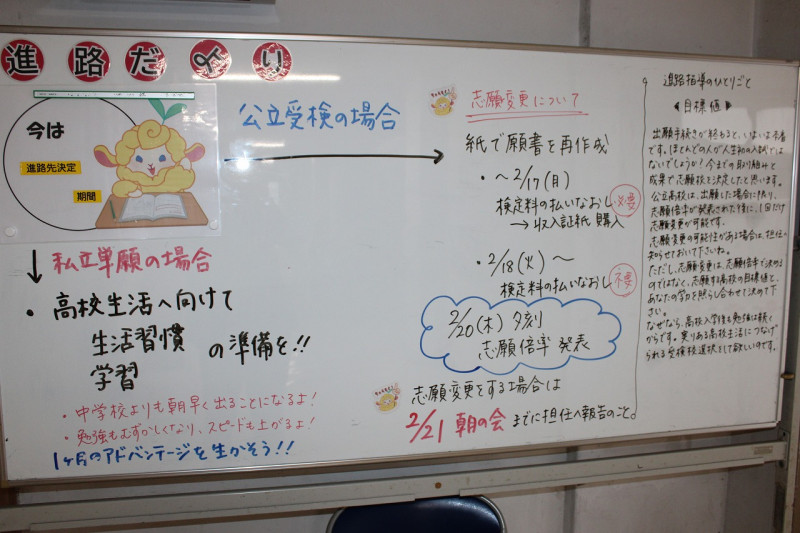 進路だより
今は
進路先決定
期間
公立受検の場合
↓ 私立単願の場合
・高校生活へ向けて
生活習慣
学習
の準備を!!
・中学校よりも朝早く出ることになるよ!
・勉強もむずかしくなり、スピードも上がるよ!
1ヶ月のアドバンテージを生かそう!!
志願変更について
紙で願書を再作成
・〜2/17(月)
検定料の払いなおし 必要
→収入証紙 購入
・2/18(火)〜
検定料の払いなおし 不要
2/20(木)夕刻
志願倍率 発表
志願変更をする場合は
2/21 朝の会 までに担任へ報告のこと。
進路指導のひとりごと
目標値
出願手続きが終わると、いよいよ本番
です。ほとんどの人が人生初の入試では
ないでしょうか!今までの取り組みと
成果で志願校を決定したと思います。
公立高校は、出願した場合に限り、
志願倍率が発表された後に、1回だけ
志願変更が可能です。
志願変更の可能性がある場合は、担任に
知らせておいて下さいね。
ただし、志願変更は、志願倍率で決める
のではなく、志願する高校の目標値と、
あなたの学力を照らし合わせて決めて下
さい。
なぜなら、高校入学後も勉強は続く
からです。実りある高校生活につなげ
られる受検校選択をして欲しいのです。